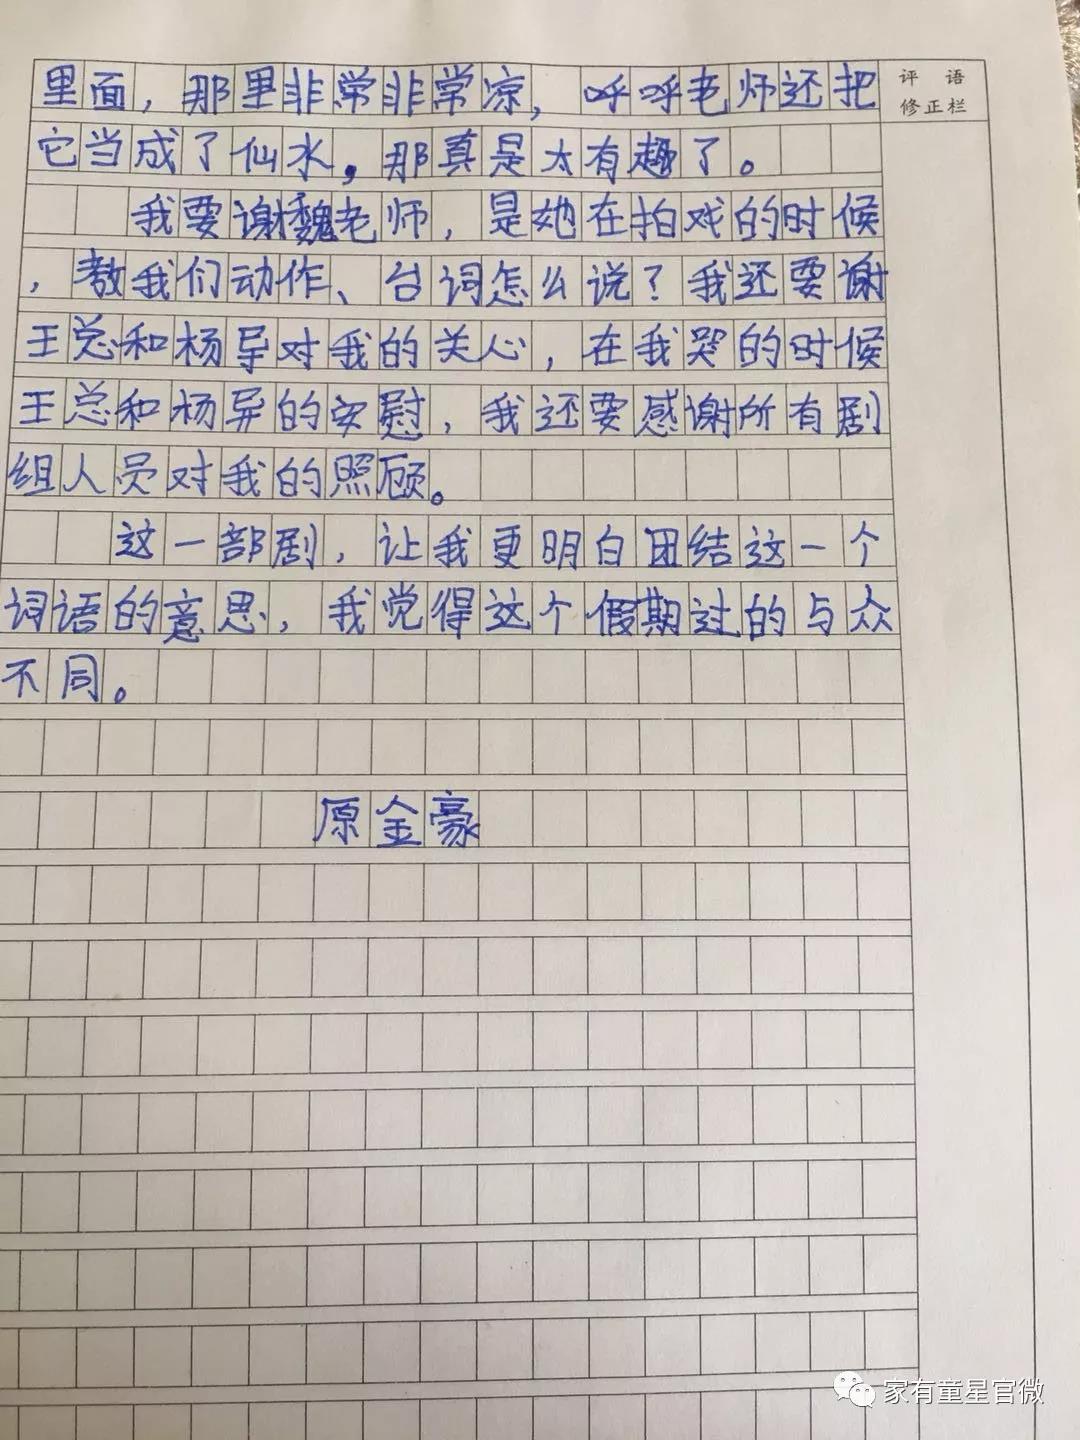 里面，那里非常非常凉，呼呼老师还把
它当成了仙水，那真是太有趣了。
我要谢魏老师，是她在拍戏的时候
，教我们动作、台词怎么说？我还要谢
王总和杨导对我的关心，在我哭的时候
王总和杨导的安慰，我还要感谢所有剧
组人员对我的照顾。
这一部剧，让我更明白团结这一个
词语的意思，我觉得这个假期过的与众
不同。
原金豪
评语
修正栏
家有童星官微